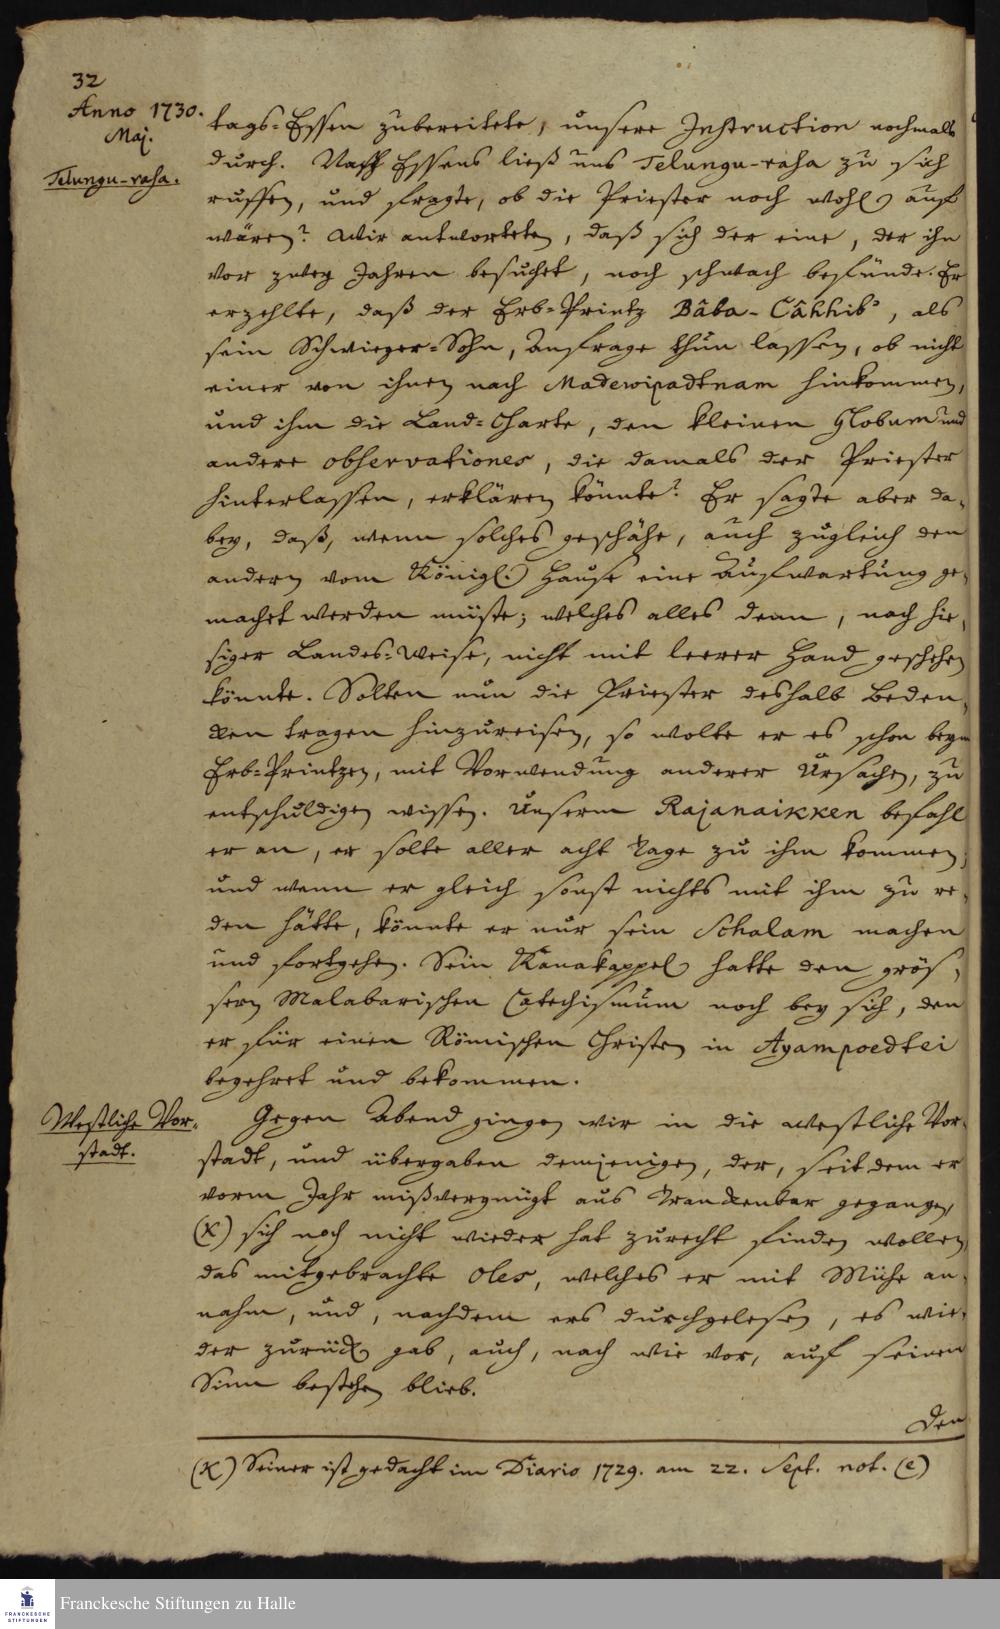 32
Anno 1730.
Maj.
Telungu-rasa.
tags-Essen zubereitete, unsere Instruction nochmals
durch. Nach Essens ließ uns Telungu-rasa zu sich
ruffen, und fragte, ob die Priester noch wohl auf
wären? Wir antworteten, daß sich der eine, der ihn
vor zwey Jahren besuchet, noch schwach befünde. Er
erzehlte, daß der Erb-Printz Bâba-Câhhib, als
sein Schwieger-Sohn, Anfrage thun lassen, ob nicht
einer von ihnen nach Madewipadtnam hinkommen,
und ihm die Land-Charte, den kleinen Globum und
andere observationes, die damals der Priester
hinterlassen, erklären könnte? Er sagte aber da-
bey, daß, wenn solches geschähe, auch zugleich den
andern vom Königl. Hause eine Aufwartung ge-
machet werden müste; welches alles denn, nach hie-
siger Landes-Weise, nicht mit leerer Hand geschehen
könnte. Solten nun die Priester deshalb Beden-
cken tragen hinzureisen, so wolte er es schon beym
Erb-Printzen, mit Vorwendung anderer Ursachen, zu
entschuldigen wissen. Unserm Rajanaikken befahl
er an, er solte aller acht Tage zu ihm kommen;
und wenn er gleich sonst nichts mit ihm zu re-
den hätte, könnte er nur sein Schalam machen
und fortgehen. Sein Kanakappel hatte den grös-
sern Malabarischen Catechismum noch bey sich, den
er für einen Römischen Christen in Ayampoedtei
begehret und bekommen.
Westliche Vor-
stadt.
Gegen Abend gingen wir in die westliche Vor-
stadt, und übergaben demjenigen, der, seit dem er
vorm Jahr mißvergnügt aus Tranckenbar gegangen,
(X) sich noch nicht wieder hat zurecht finden wollen,
das mitgebrachte Oles, welches er mit Mühe an-
nahm, und, nachdem ers durchgelesen, es wie-
der zurück gab, auch, nach wie vor, auf seinem
Sinn bestehen blieb.
Den
(X) Seiner ist gedacht im Diario 1729. am 22. Sept. not. (e)
FRANCKESCHE
STIFTUNGEN
Franckesche Stiftungen zu Halle